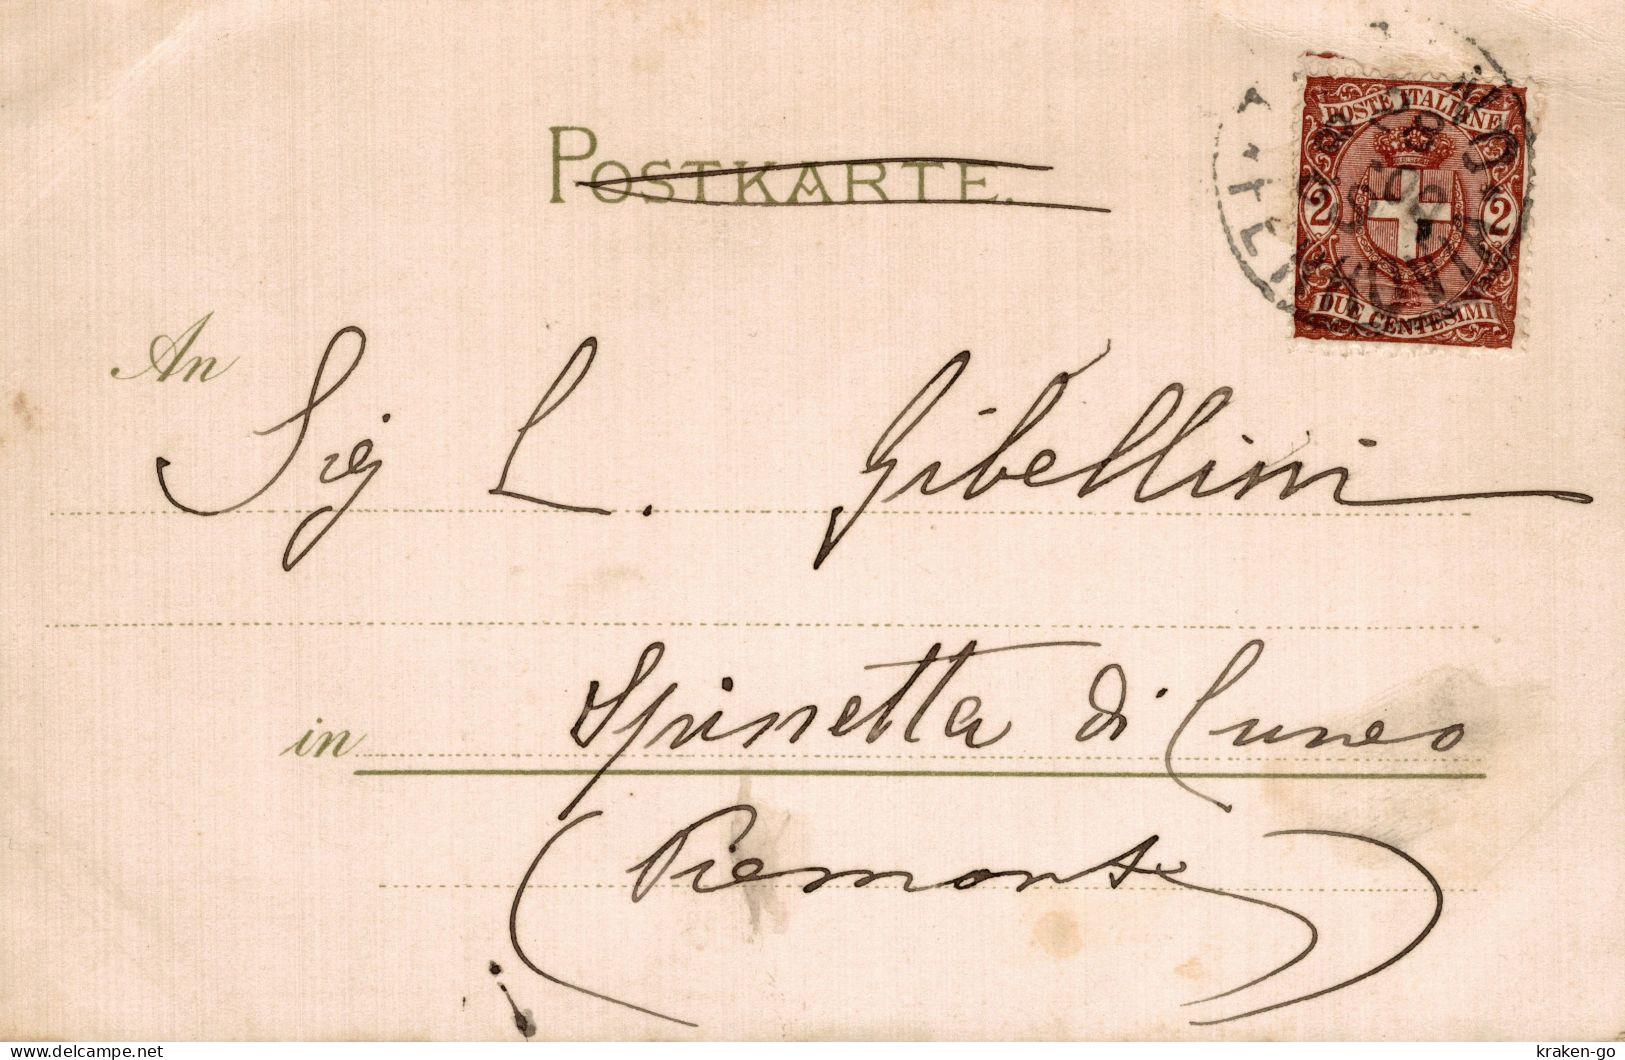 POSTKARTE.
POSTE ITALIANE
2 2
DUE CENTESIMI
An
Sig L. Gibellini
in Spinetta di Cuneo
(Piemonte)
kraken-go